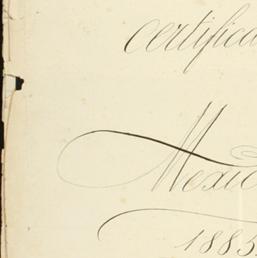 certifica
Mexic
1885.